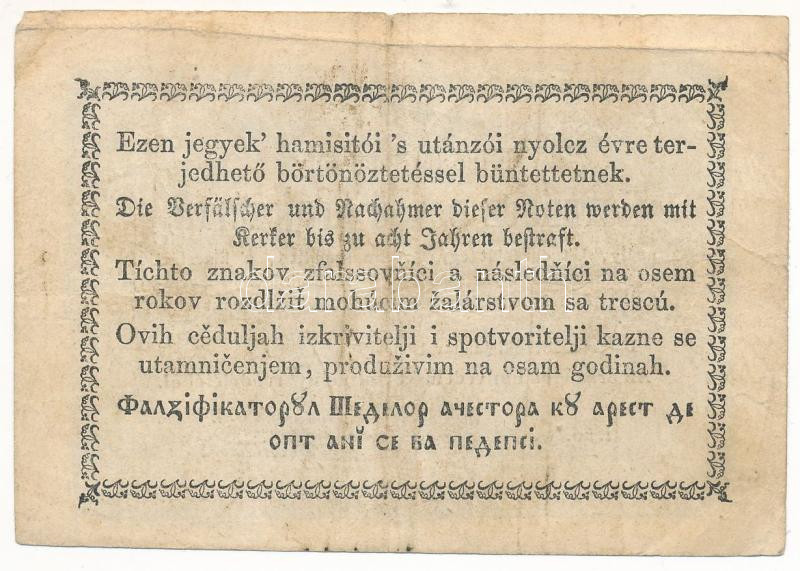 Ezen jegyek' hamisitói 's utánzói nyolcz évre ter-
jedhető börtönöztetéssel büntettetnek.
Die Verfälscher und Nachahmer dieser Noten werden mit
Kerker bis zu acht Jahren bestraft.
Tíchto znakov zfalssovňíci a následňíci na osem
rokov rozdlžiť mohúcim žalárstvom sa trescú.
Ovih cěduljah izkrivitelji i spotvoritelji kazne se
utamničenjem, produživim na osam godinah.
Фалꙁіфікаторꙋл Шеделор ачестора кꙋ арест де
опт анĭ се ва педепсі.